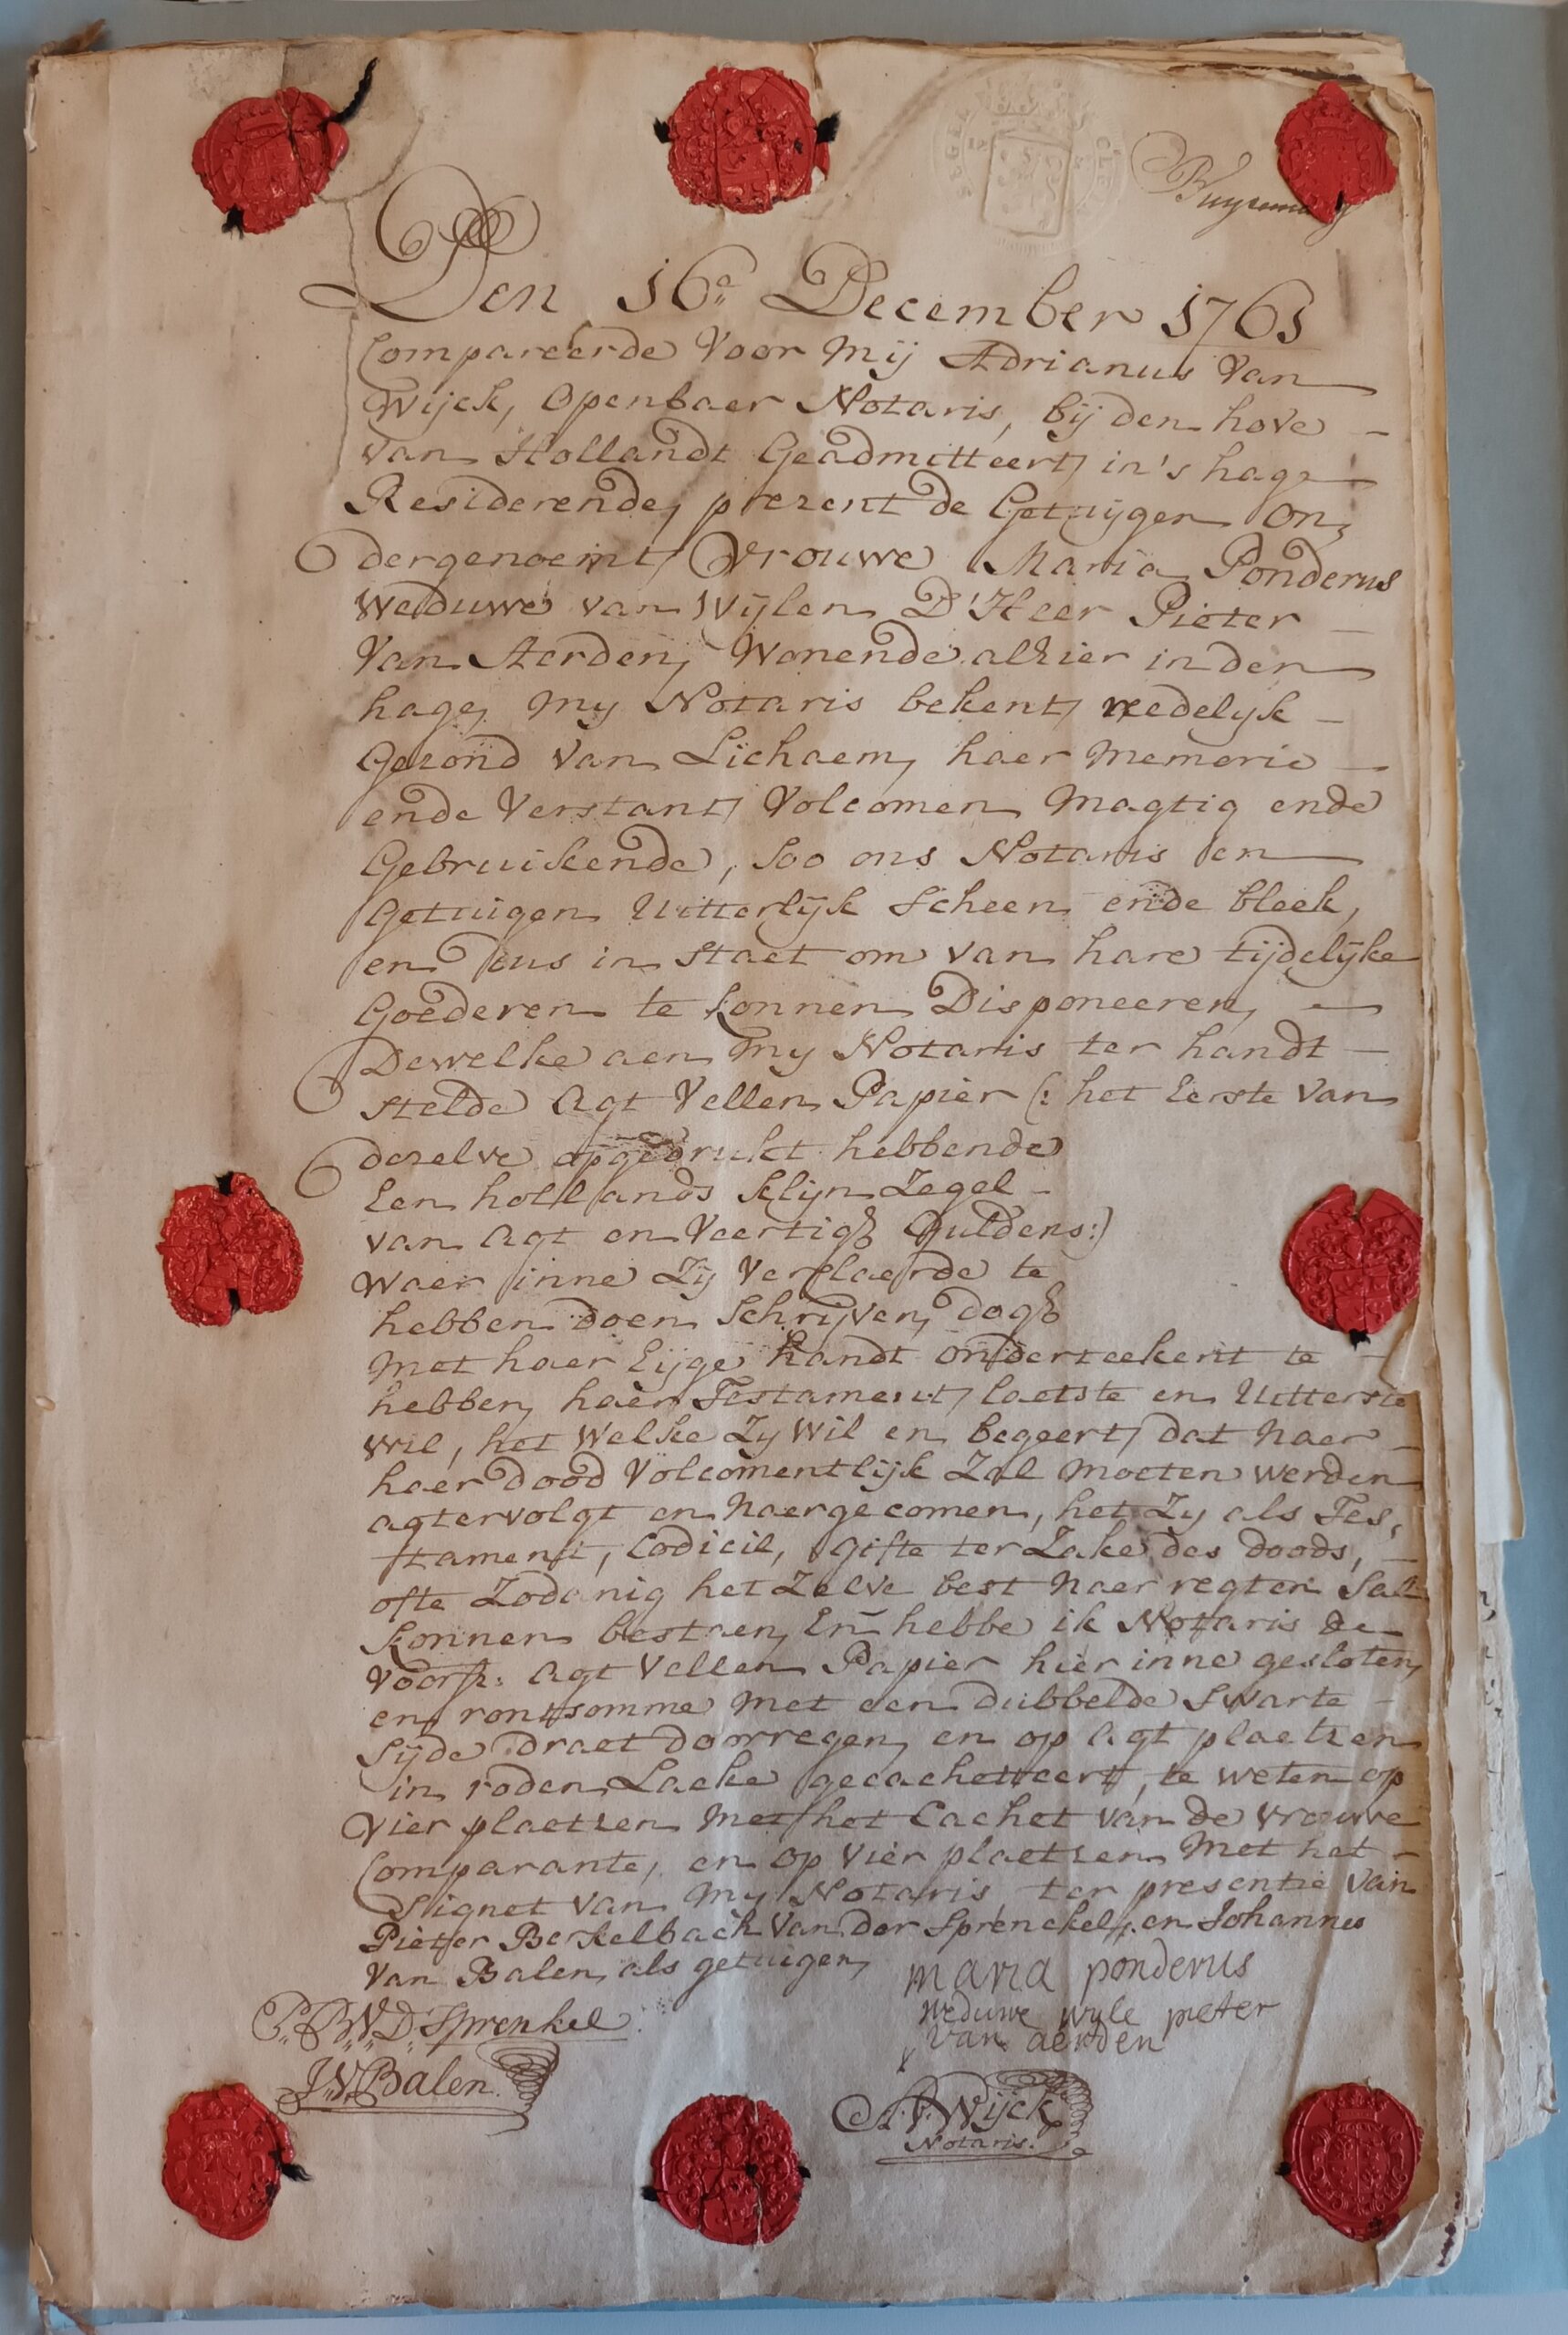 SEGEL CLEIN
Den 16e. December 1761
Compareerde Voor Mij Adrianus Van
Wijck, Openbaer Notaris, bij den hove
van Hollandt Geadmitteert, in's hage
Residerende, prezent de Getuijgen On,
dergenoemt, Vrouwe Maria Ponderus
Weduwe van Wijlen D'Heer Pieter
Van Aerden, Wonende alhier in den
hage, my Notaris bekent, redelijk
Gezond van Lichaem, haer Memorie
ende Verstant, Volcomen Magtig ende
Gebruikende, soo ons Notaris en
Getuigen Uitterlijk scheen ende bleek,
en dus in staet om van hare tijdelijke
Goederen te konnen Disponeeren,
Dewelke aen my Notaris ter handt
stelde Agt Vellen Papier (: het Eerste van
dezelve opgedrukt hebbende
Een hollands klijn Zegel
van Agt en Veertigh Guldens:)
waer inne Zij Verklaerde te
hebben doen Schrijven, dogh
met haer Eijge handt onderteekent te
hebben, haer Testament, laetste en Uitterste
wil, het Welke Zy Wil en begeert, dat naer
haer dood Volcomentlijk Zal moeten werden
agtervolgt en Naergecomen, het Zy als Tes,
tament, Codicil, gifte ter Zake des doods,
ofte Zodanig het Zelve best naer regten Sal
konnen bestaen, En hebbe ik Notaris de
voorsz: Agt Vellen Papier hier inne gesloten,
en rontsomme met een dubbelde swarte
Sijde draet doorregen, en op Agt plaetzen
in roden Lacke gecachetteert, te weten op
Vier plaetzen met het Cachet van de vrouwe
Comparante, en op Vier plaetzen Met het
Signet van My Notaris ter presentie van
Pieter Berkelbach Van der Sprenckel, en Johannes
Van Balen, als getuigen,
maria ponderus
weduwe wyle pieter
van aerden
P.B.V.D. Sprenkel
J.V. Balen.
A.V. Wijck
Notaris.